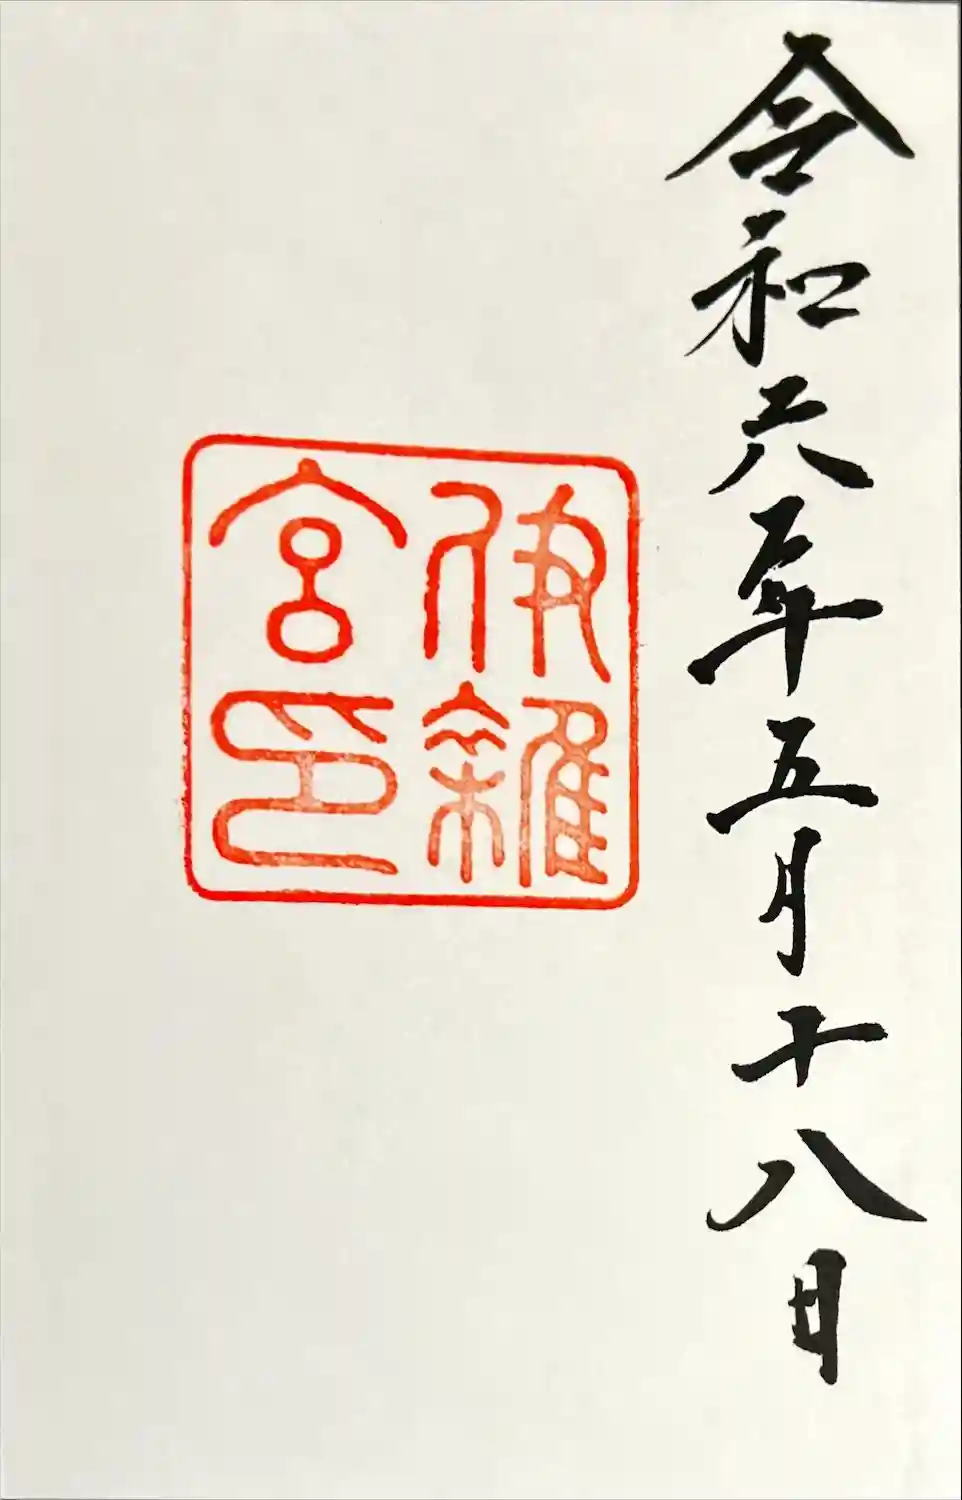 令和六年五月十八日
伊雜
宮印